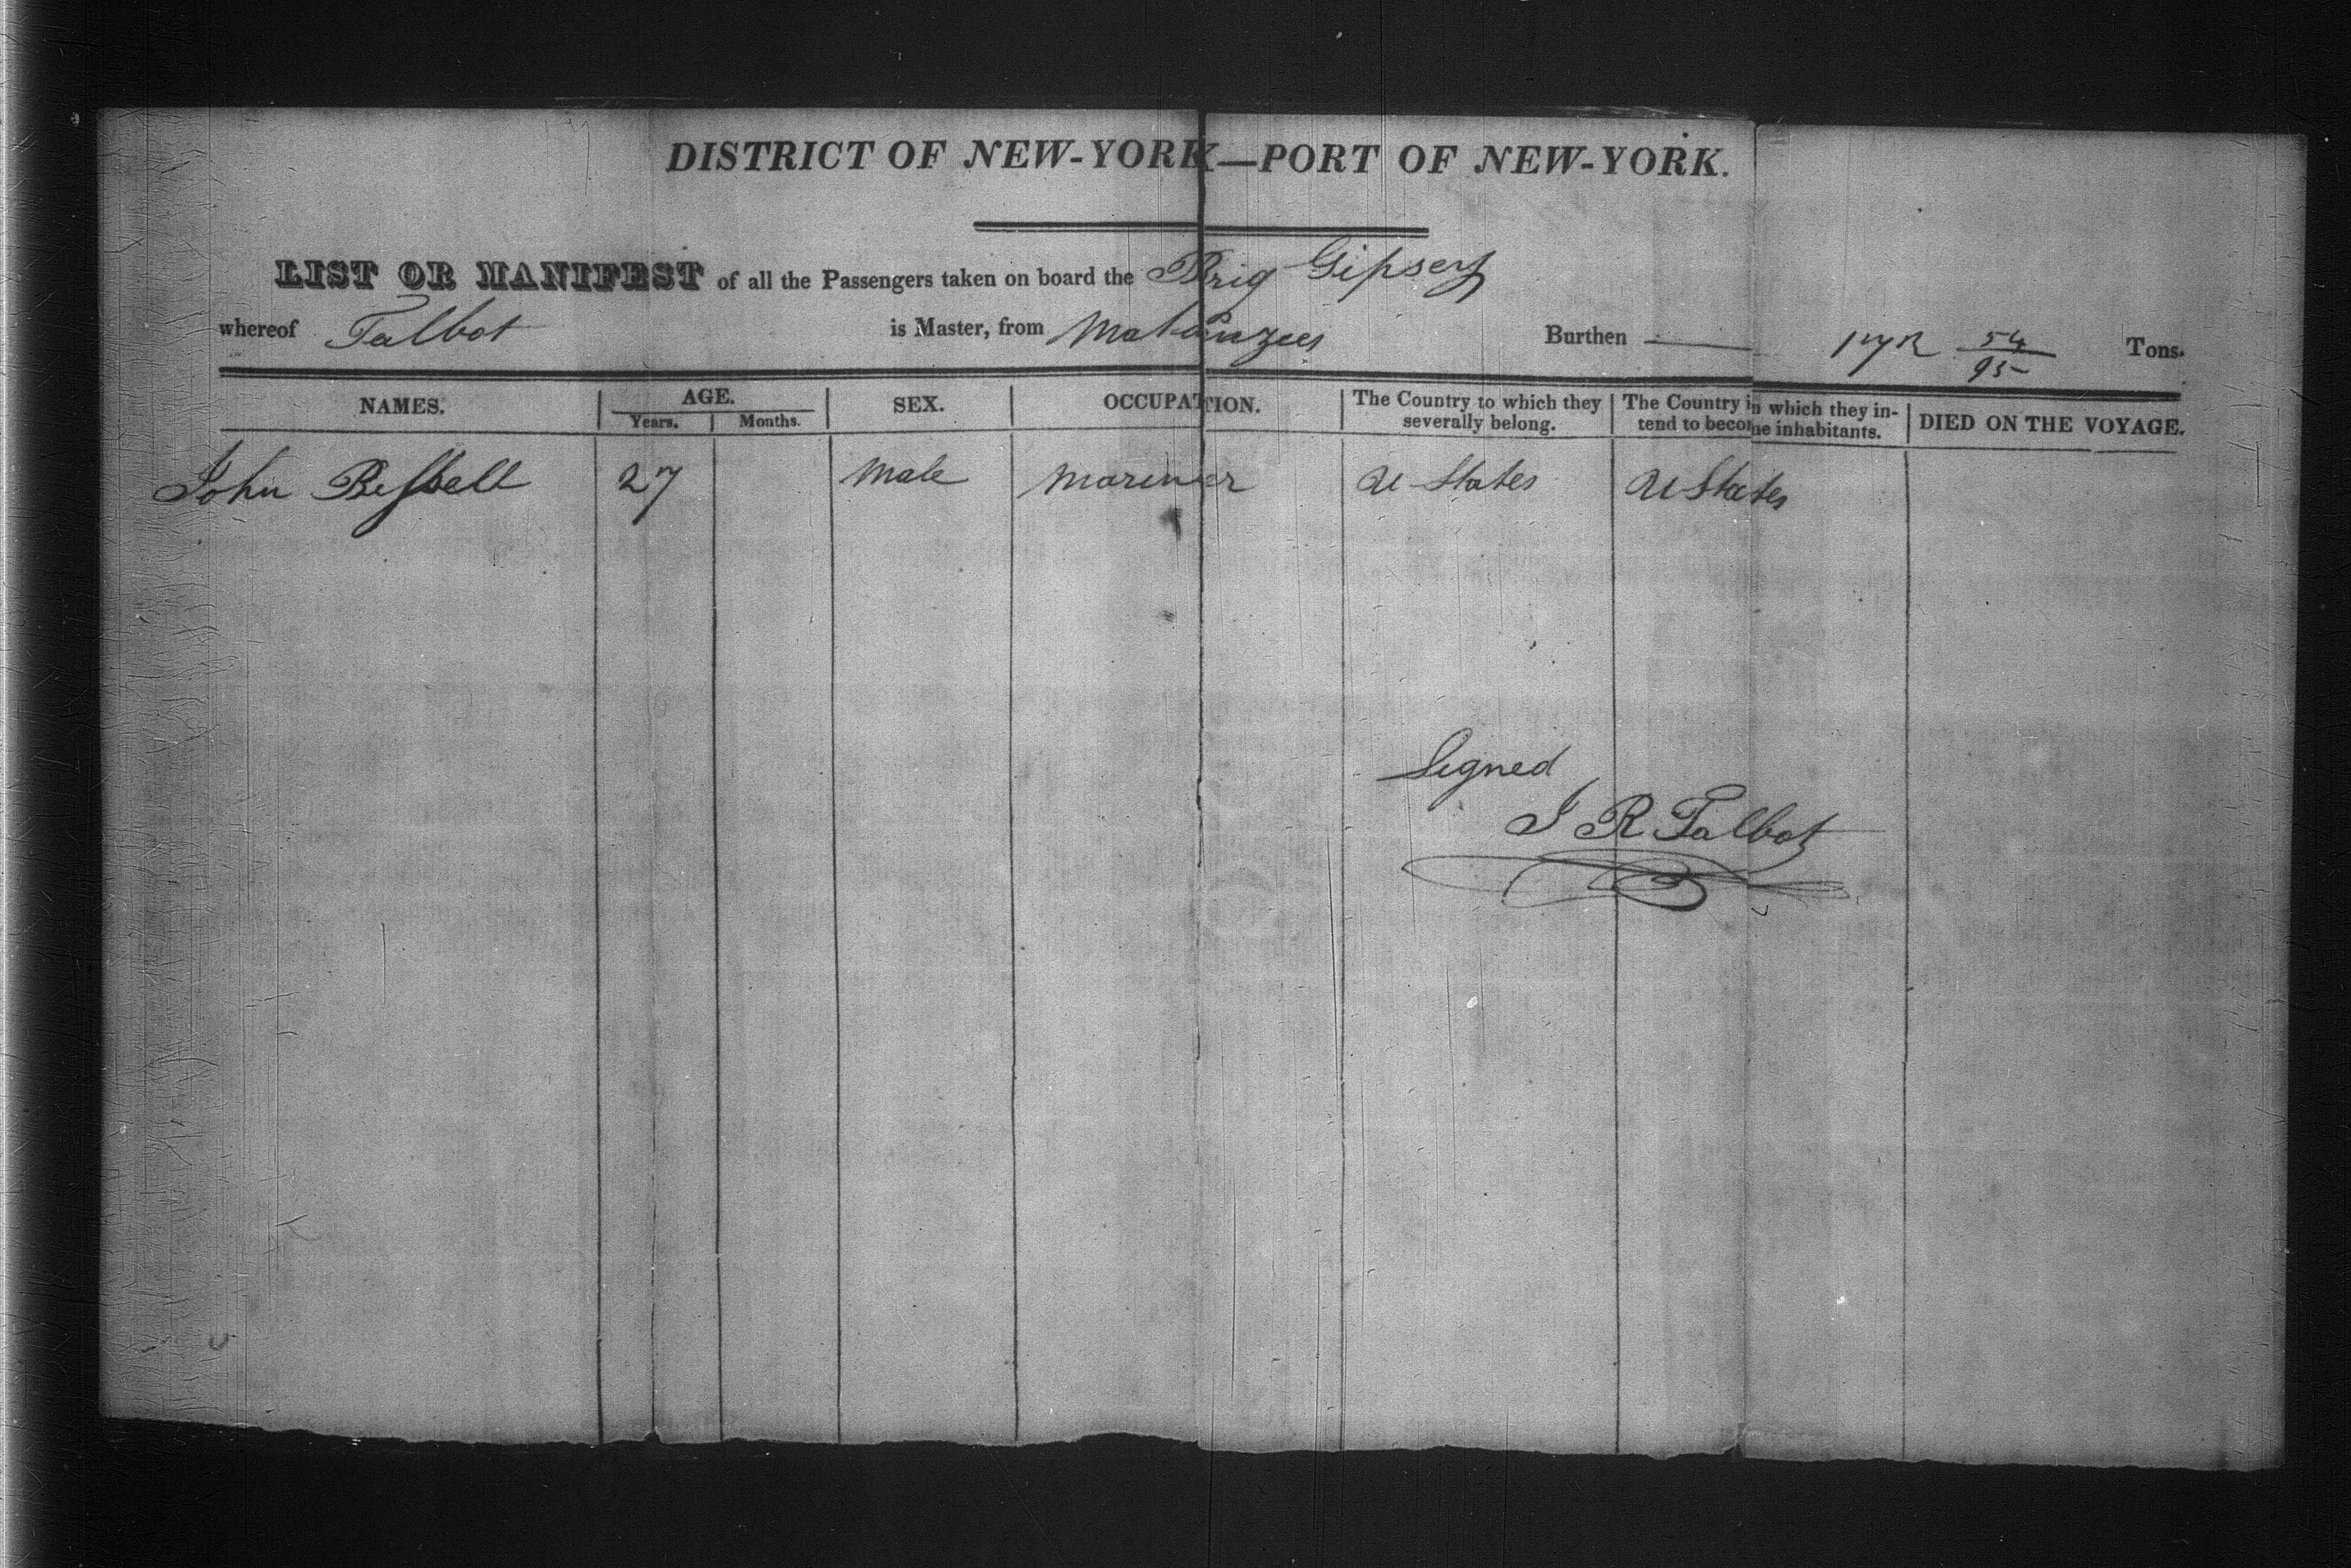 DISTRICT OF NEW-YORK—PORT OF NEW-YORK.
LIST OR MANIFEST of all the Passengers taken on board the Brig Gipsey
whereof Talbot is Master, from Matanzees Burthen 54/95 Tons.
NAMES. AGE. SEX. OCCUPATION. The Country to which they severally belong. The Country in which they intend to become inhabitants. DIED ON THE VOYAGE.
Years. Months.
John 27 Male Mariner U States U States
Signed
J R Talbot